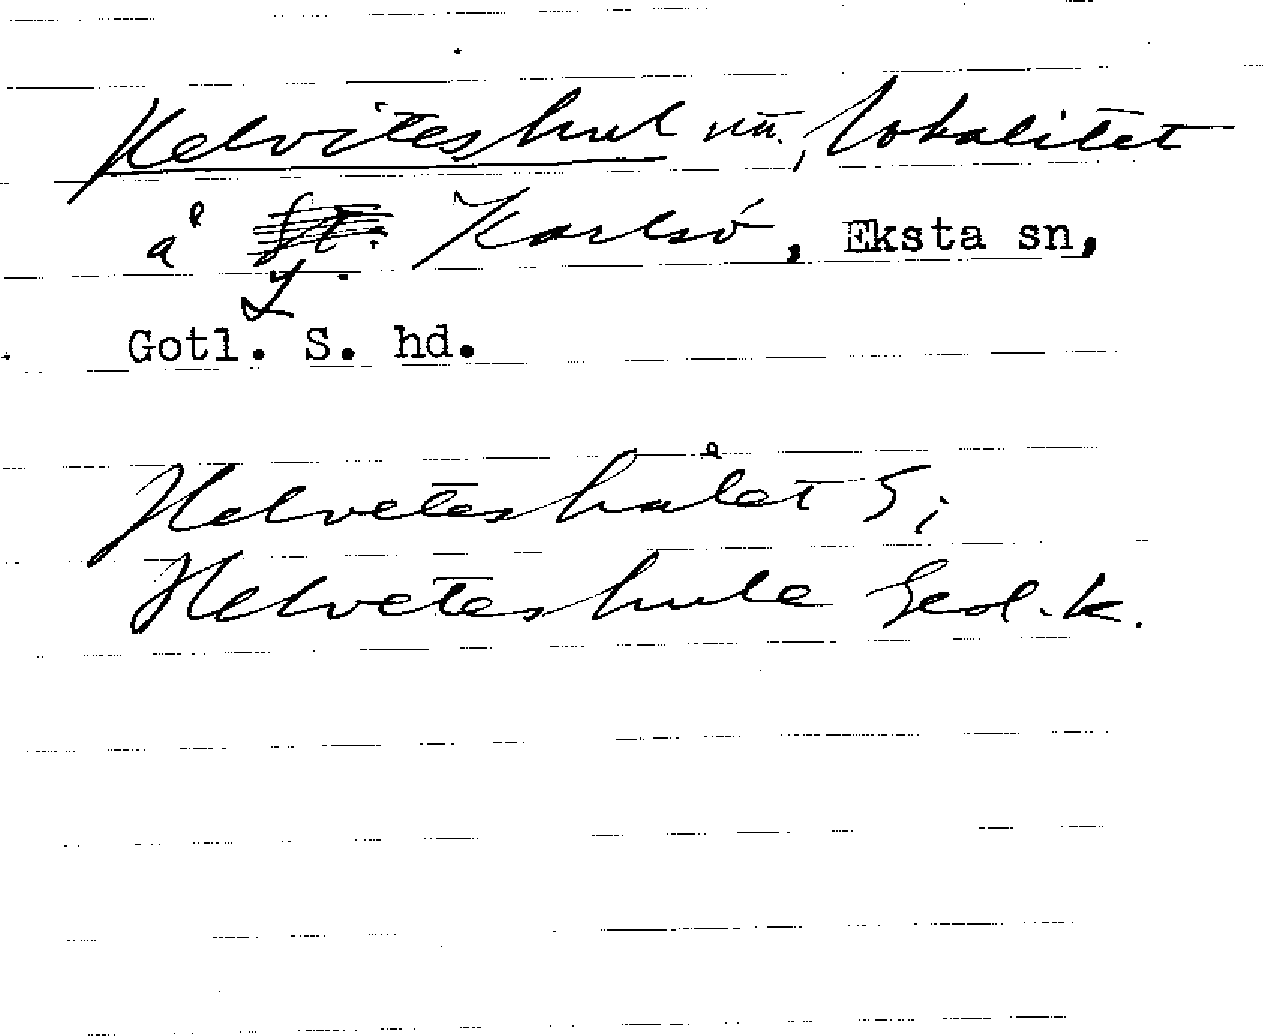 Helviteshul nu., lokalitet
å L. Karlsö, Eksta sn,
Gotl. S. hd.
Helveteshålet S;
Helveteshule Geol. k.